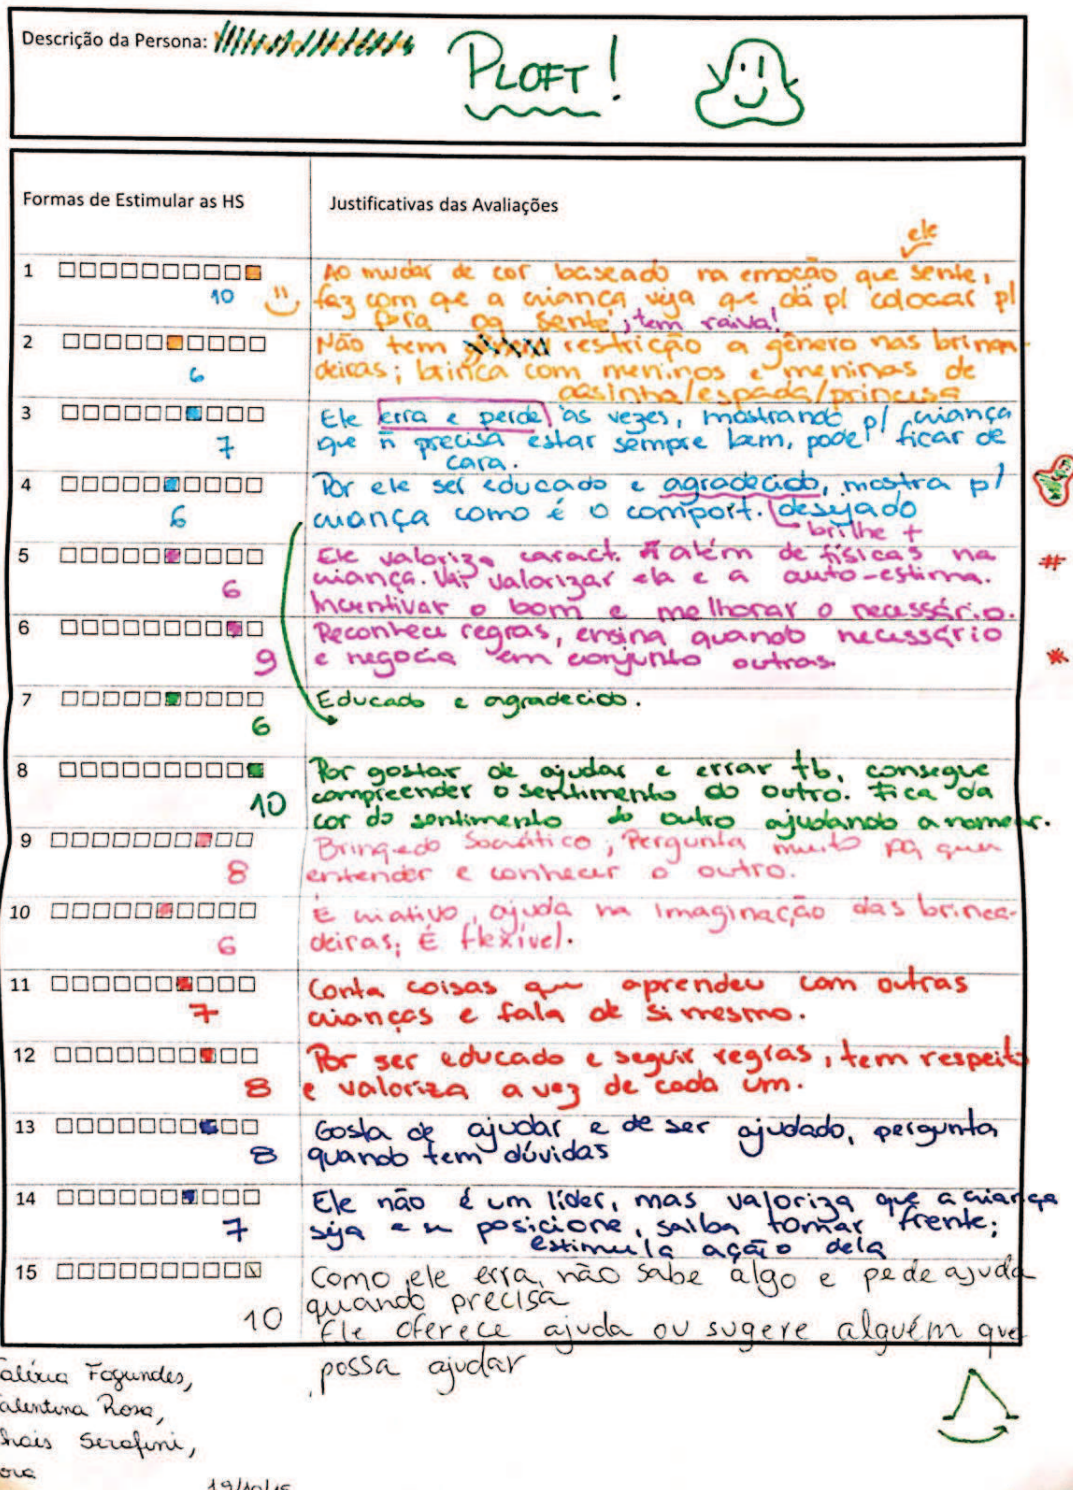 Descrição da Persona:
PLOFT!
Formas de Estimular as HS
Justificativas das Avaliações
1
10
ele
Ao mudar de cor baseado na emoção que sente,
faz com que a criança veja que dá p/ colocar p/
fora oq sente; tem raiva!
2
6
Não tem restrição a gênero nas brinca-
deiras; brinca com meninos e meninas de
casinha/espada/princesa
3
7
Ele erra e perde as vezes, mostrando p/ criança
que ñ precisa estar sempre bem, pode ficar de
cara.
4
6
Por ele ser educado e agradecido, mostra p/
criança como é o comport. desejado
brilhe +
5
6
Ele valoriza caract. além de físicas na
criança. Vai valorizar ela e a auto-estima.
Incentivar o bom e melhorar o necessário.
#
6
9
Reconhece regras, ensina quando necessário
e negocia em conjunto outras.
*
7
6
Educado e agradecido.
8
10
Por gostar de ajudar e errar tb, consegue
compreender o sentimento do outro. Fica da
cor do sentimento do outro ajudando a nomear.
9
8
Brinqedo Socrático; Pergunta muito pq quer
entender e conhecer o outro.
10
6
É criativo, ajuda na imaginação das brinca-
deiras; É flexível.
11
7
Conta coisas que aprendeu com outras
crianças e fala de si mesmo.
12
8
Por ser educado e seguir regras, tem respeito
e valoriza a vez de cada um.
13
8
Gosta de ajudar e de ser ajudado, pergunta
quando tem dúvidas
14
7
Ele não é um líder, mas valoriza que a criança
seja e se posicione, saiba tomar frente;
estimula ação dela
15
10
Como ele erra, não sabe algo e pede ajuda
quando precisa
Ele oferece ajuda ou sugere alguém que
possa ajudar
Fagundes,
alentina Rosa,
hais Serafini,
19/10/15